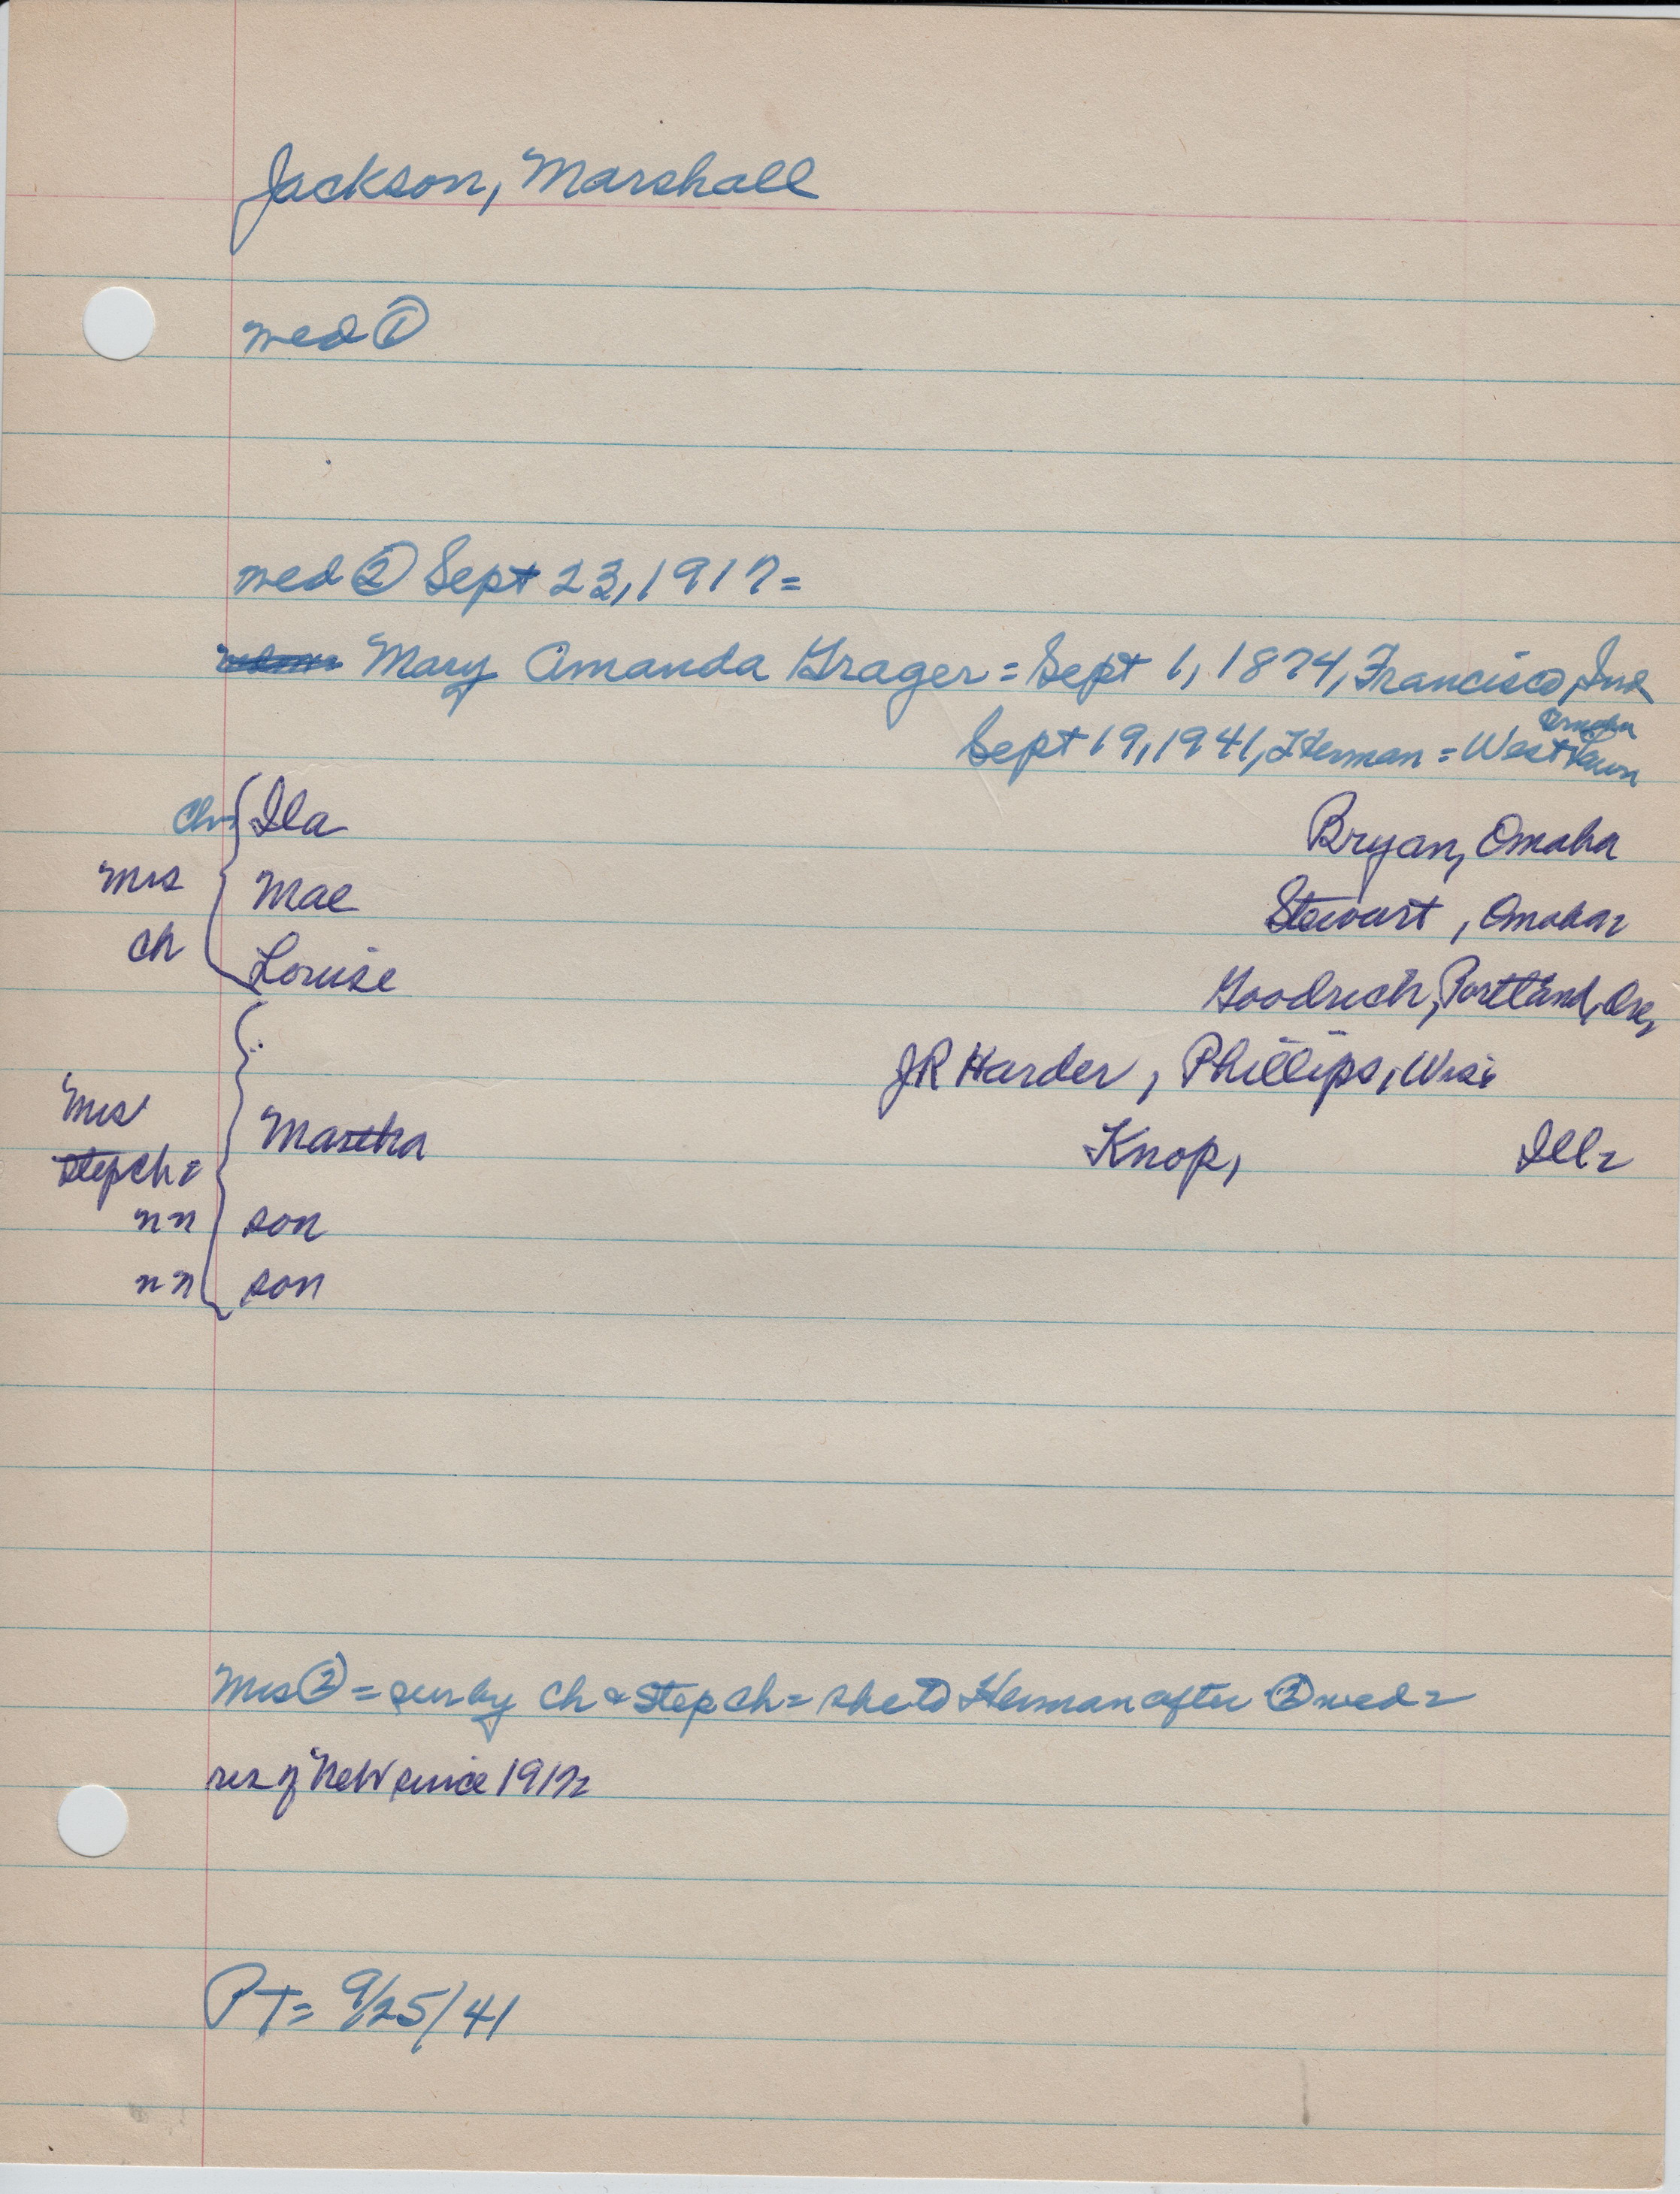 Jackson, Marshall
wed ①
wed ② Sept 23, 1917=
Mary Amanda Grager = Sept 1, 1874, Francisco, Ind
Omaha
Sept 19, 1941, Herman = West Lawn
ch= Ila Bryan, Omaha
mrs Mae Stewart, Omaha=
ch Louise Goodrich, Portland, Ore,
JR Harder, Phillips, Wis=
Mrs Martha Knop, Ill=
stepch=
nn son
nn son
Mrs ② = sur by ch & stepch= she to Herman after ② wed=
res of neb since 1917=
PT= 9/25/41